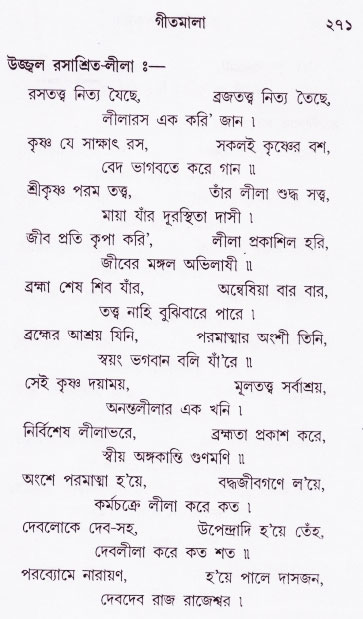 গীতমালা ২৭১
উজ্জ্বল রসাশ্রিত-লীলা ঃ—
রসতত্ত্ব নিত্য যৈছে, ব্রজতত্ত্ব নিত্য তৈছে,
লীলারস এক করি' জান ।
কৃষ্ণ যে সাক্ষাৎ রস, সকলই কৃষ্ণের বশ,
বেদ ভাগবতে করে গান ॥
শ্রীকৃষ্ণ পরম তত্ত্ব, তাঁর লীলা শুদ্ধ সত্ত্ব,
মায়া যাঁর দূরস্থিতা দাসী ।
জীব প্রতি কৃপা করি', লীলা প্রকাশিল হরি,
জীবের মঙ্গল অভিলাষী ॥
ব্রহ্মা শেষ শিব যাঁর, অন্বেষিয়া বার বার,
তত্ত্ব নাহি বুঝিবারে পারে ।
ব্রহ্মের আশ্রয় যিনি, পরমাত্মার অংশী তিনি,
স্বয়ং ভগবান বলি যাঁ'রে ॥
সেই কৃষ্ণ দয়াময়, মূলতত্ত্ব সর্বাশ্রয়,
অনন্তলীলার এক খনি ।
নির্বিশেষ লীলাভরে, ব্রহ্মতা প্রকাশ করে,
স্বীয় অঙ্গকান্তি গুণমণি ॥
অংশে পরমাত্মা হ'য়ে, বদ্ধজীবগণে ল'য়ে,
কর্মচক্রে লীলা করে কত ।
দেবলোকে দেব-সহ, উপেন্দ্রাদি হ'য়ে তেঁহ,
দেবলীলা করে কত শত ॥
পরব্যোমে নারায়ণ, হ'য়ে পালে দাসজন,
দেবদেব রাজ রাজেশ্বর ।